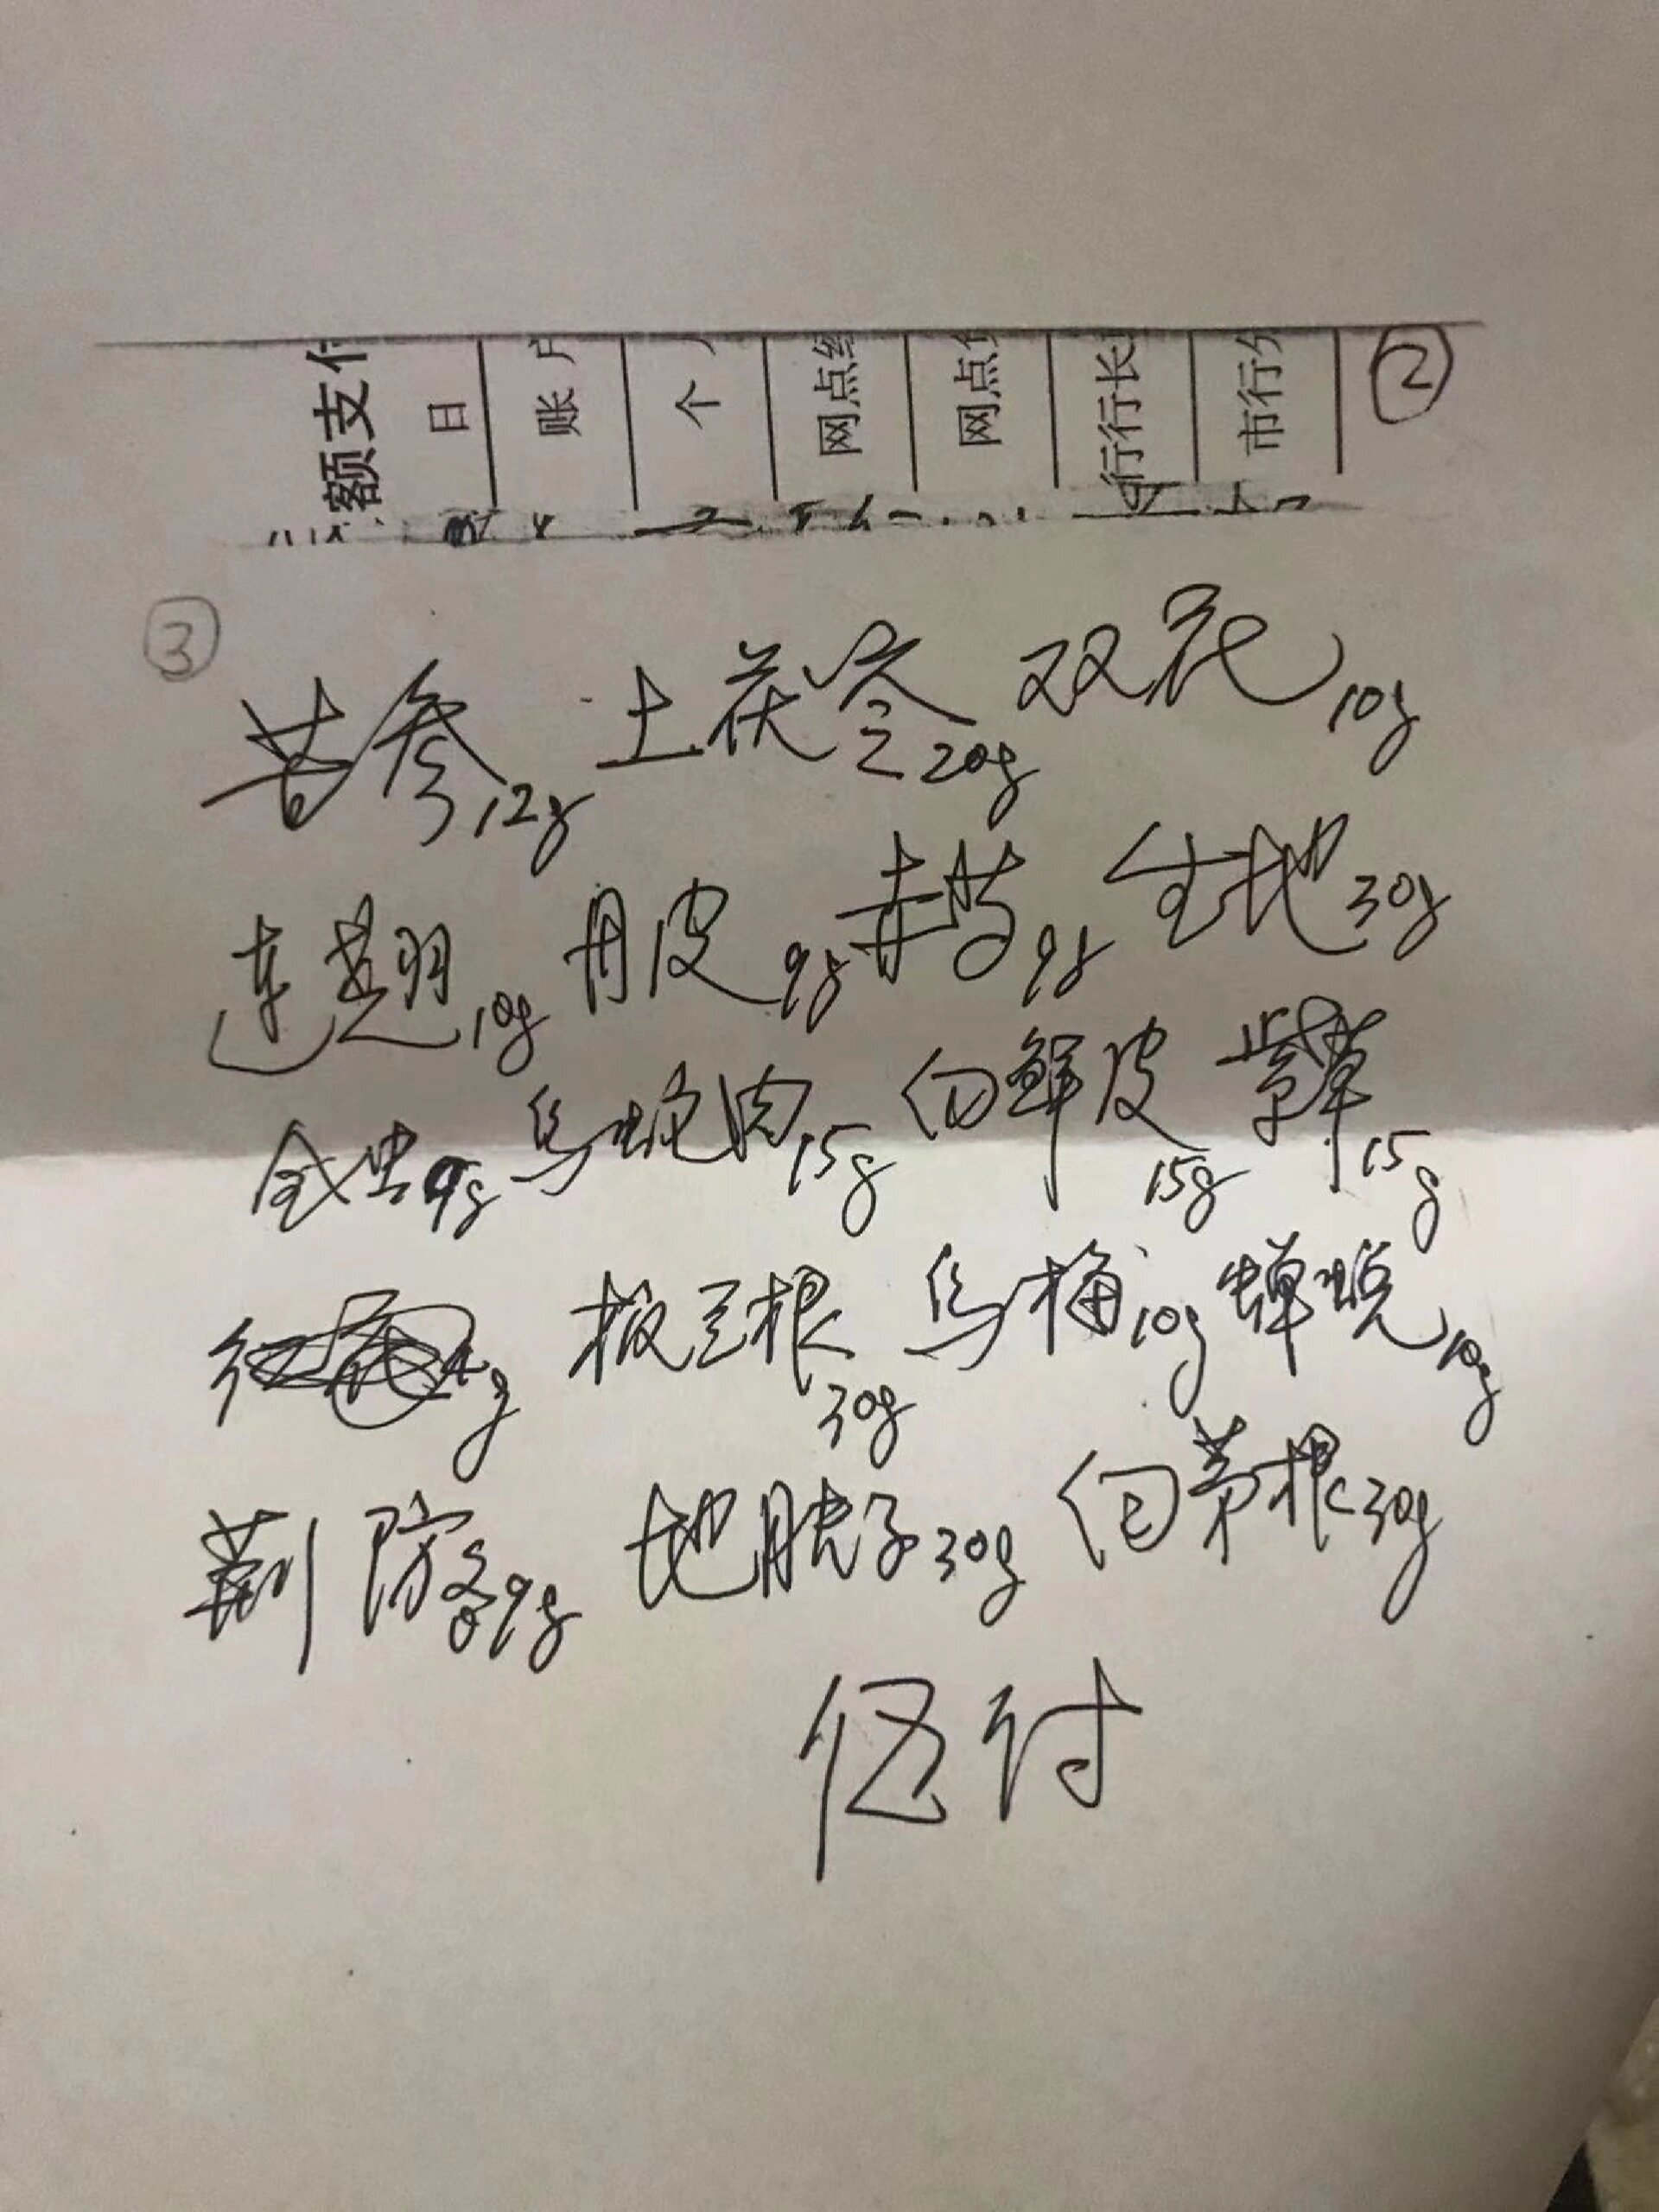 额支付
日
账户
个人
网点
网点
行行长
市行分
②
③
苦参12g 土茯苓20g 双花10g
连翘10g 丹皮9g 赤芍9g 生地30g
全虫9g 乌蛇肉15g 白鲜皮15g 紫草15g
板兰根30g 乌梅10g 蝉蜕10g
荆防各9g 地肤子30g 白茅根30g
伍付